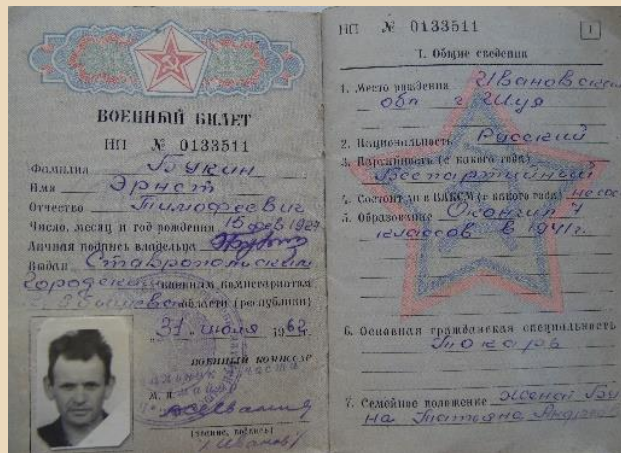 ВОЕННЫЙ БИЛЕТ
НП № 0133511
Фамилия Букин
Имя Эрнст
Отчество Тимофеевич
Число, месяц и год рождения 15 фев 1927
Личная подпись владельца
Выдан Ставропольским
Городским военным комиссариатом
области (республики)
"31" июля 1962 г.
ВОЕННЫЙ КОМИССАР
М. П.
(звание, подпись)
/Иванов/
НП № 0133511
1
I. Общие сведения
1. Место рождения Ивановская
обл г Шуя
2. Национальность Русский
3. Партийность (с какого года)
Беспартийный
4. Состоит ли в ВЛКСМ (с какого года) не сос
5. Образование Окончил 7
классов в 1941г.
6. Основная гражданская специальность
Токарь
7. Семейное положение Женат Бу
на Татьяна Андре